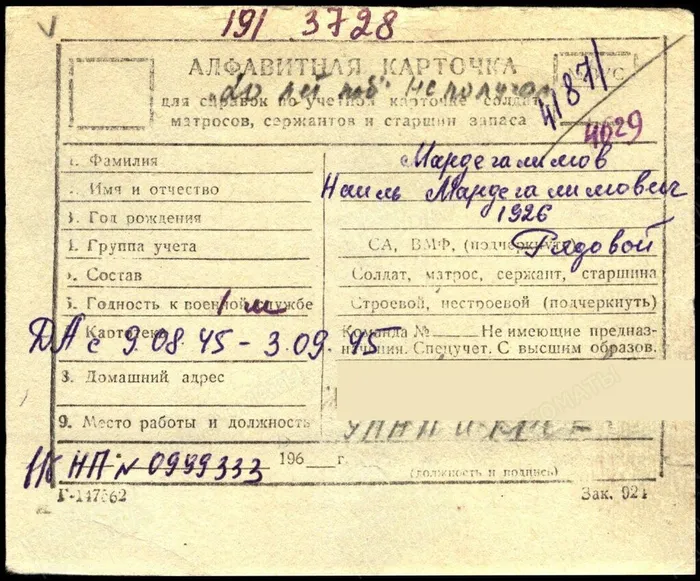 191 3728
АЛФАВИТНАЯ КАРТОЧКА
"40 лет поб" не получал
для справок по учетной карточке солдат,
матросов, сержантов и старшин запаса
41871
4029
1. Фамилия Мардегалимов
2. Имя и отчество Наиль Мардегалимович
3. Год рождения 1926
4. Группа учета СА, ВМФ, (подчеркнуть) Рядовой
5. Состав Солдат, матрос, сержант, старшина
6. Годность к военной службе Строевой, нестроевой (подчеркнуть)
1 м
7. Картотека Команда № Не имеющие предназ-
начения. Спецучет. С высшим образов.
ДА с 9.08.45 - 3.09.45
8. Домашний адрес
9. Место работы и должность
НП № 0999333 196 г.
(должность и подпись)
Г-147562 Зак. 924